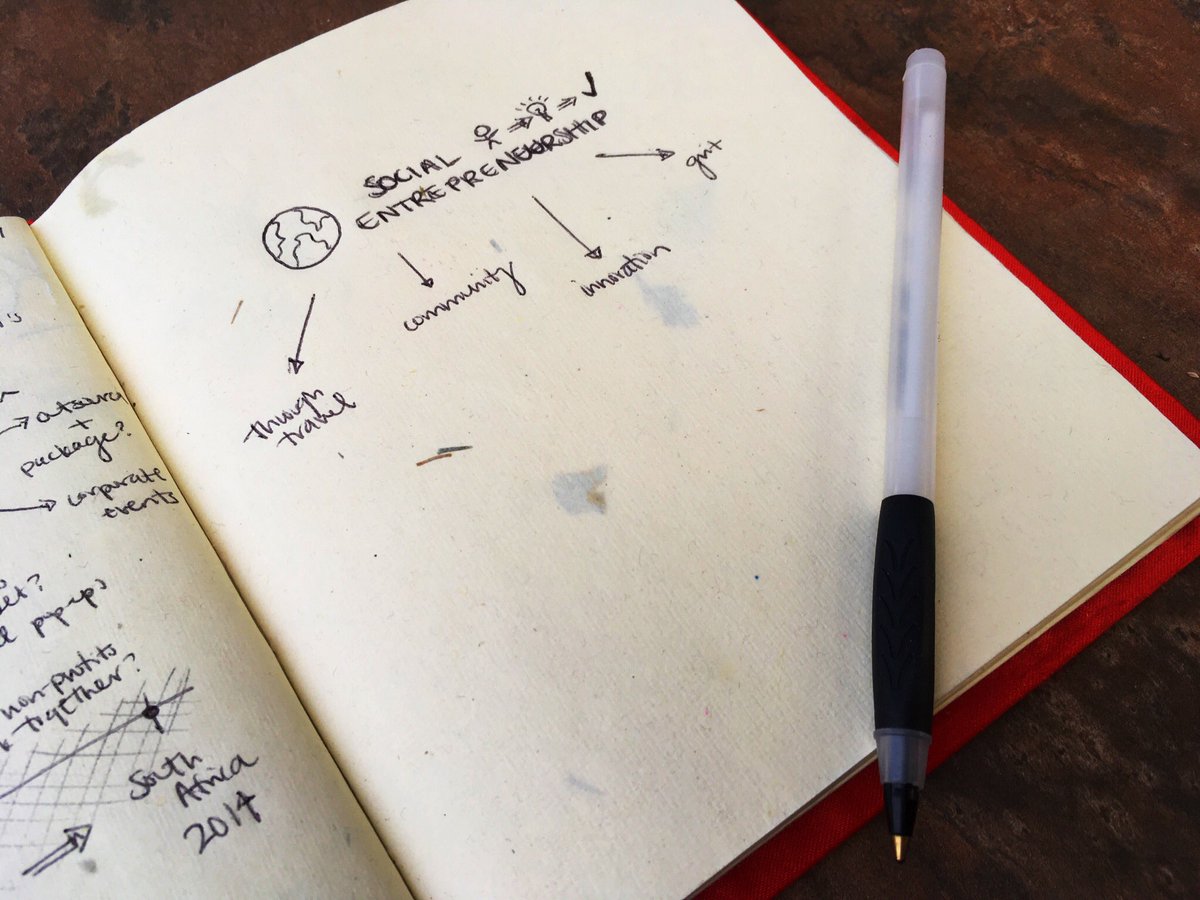 outsource
+
package?
corporate
events
pop-ups
non-profits
together?
South
Africa
2014
SOCIAL
ENTREPRENEURSHIP
grit
innovation
community
through
travel